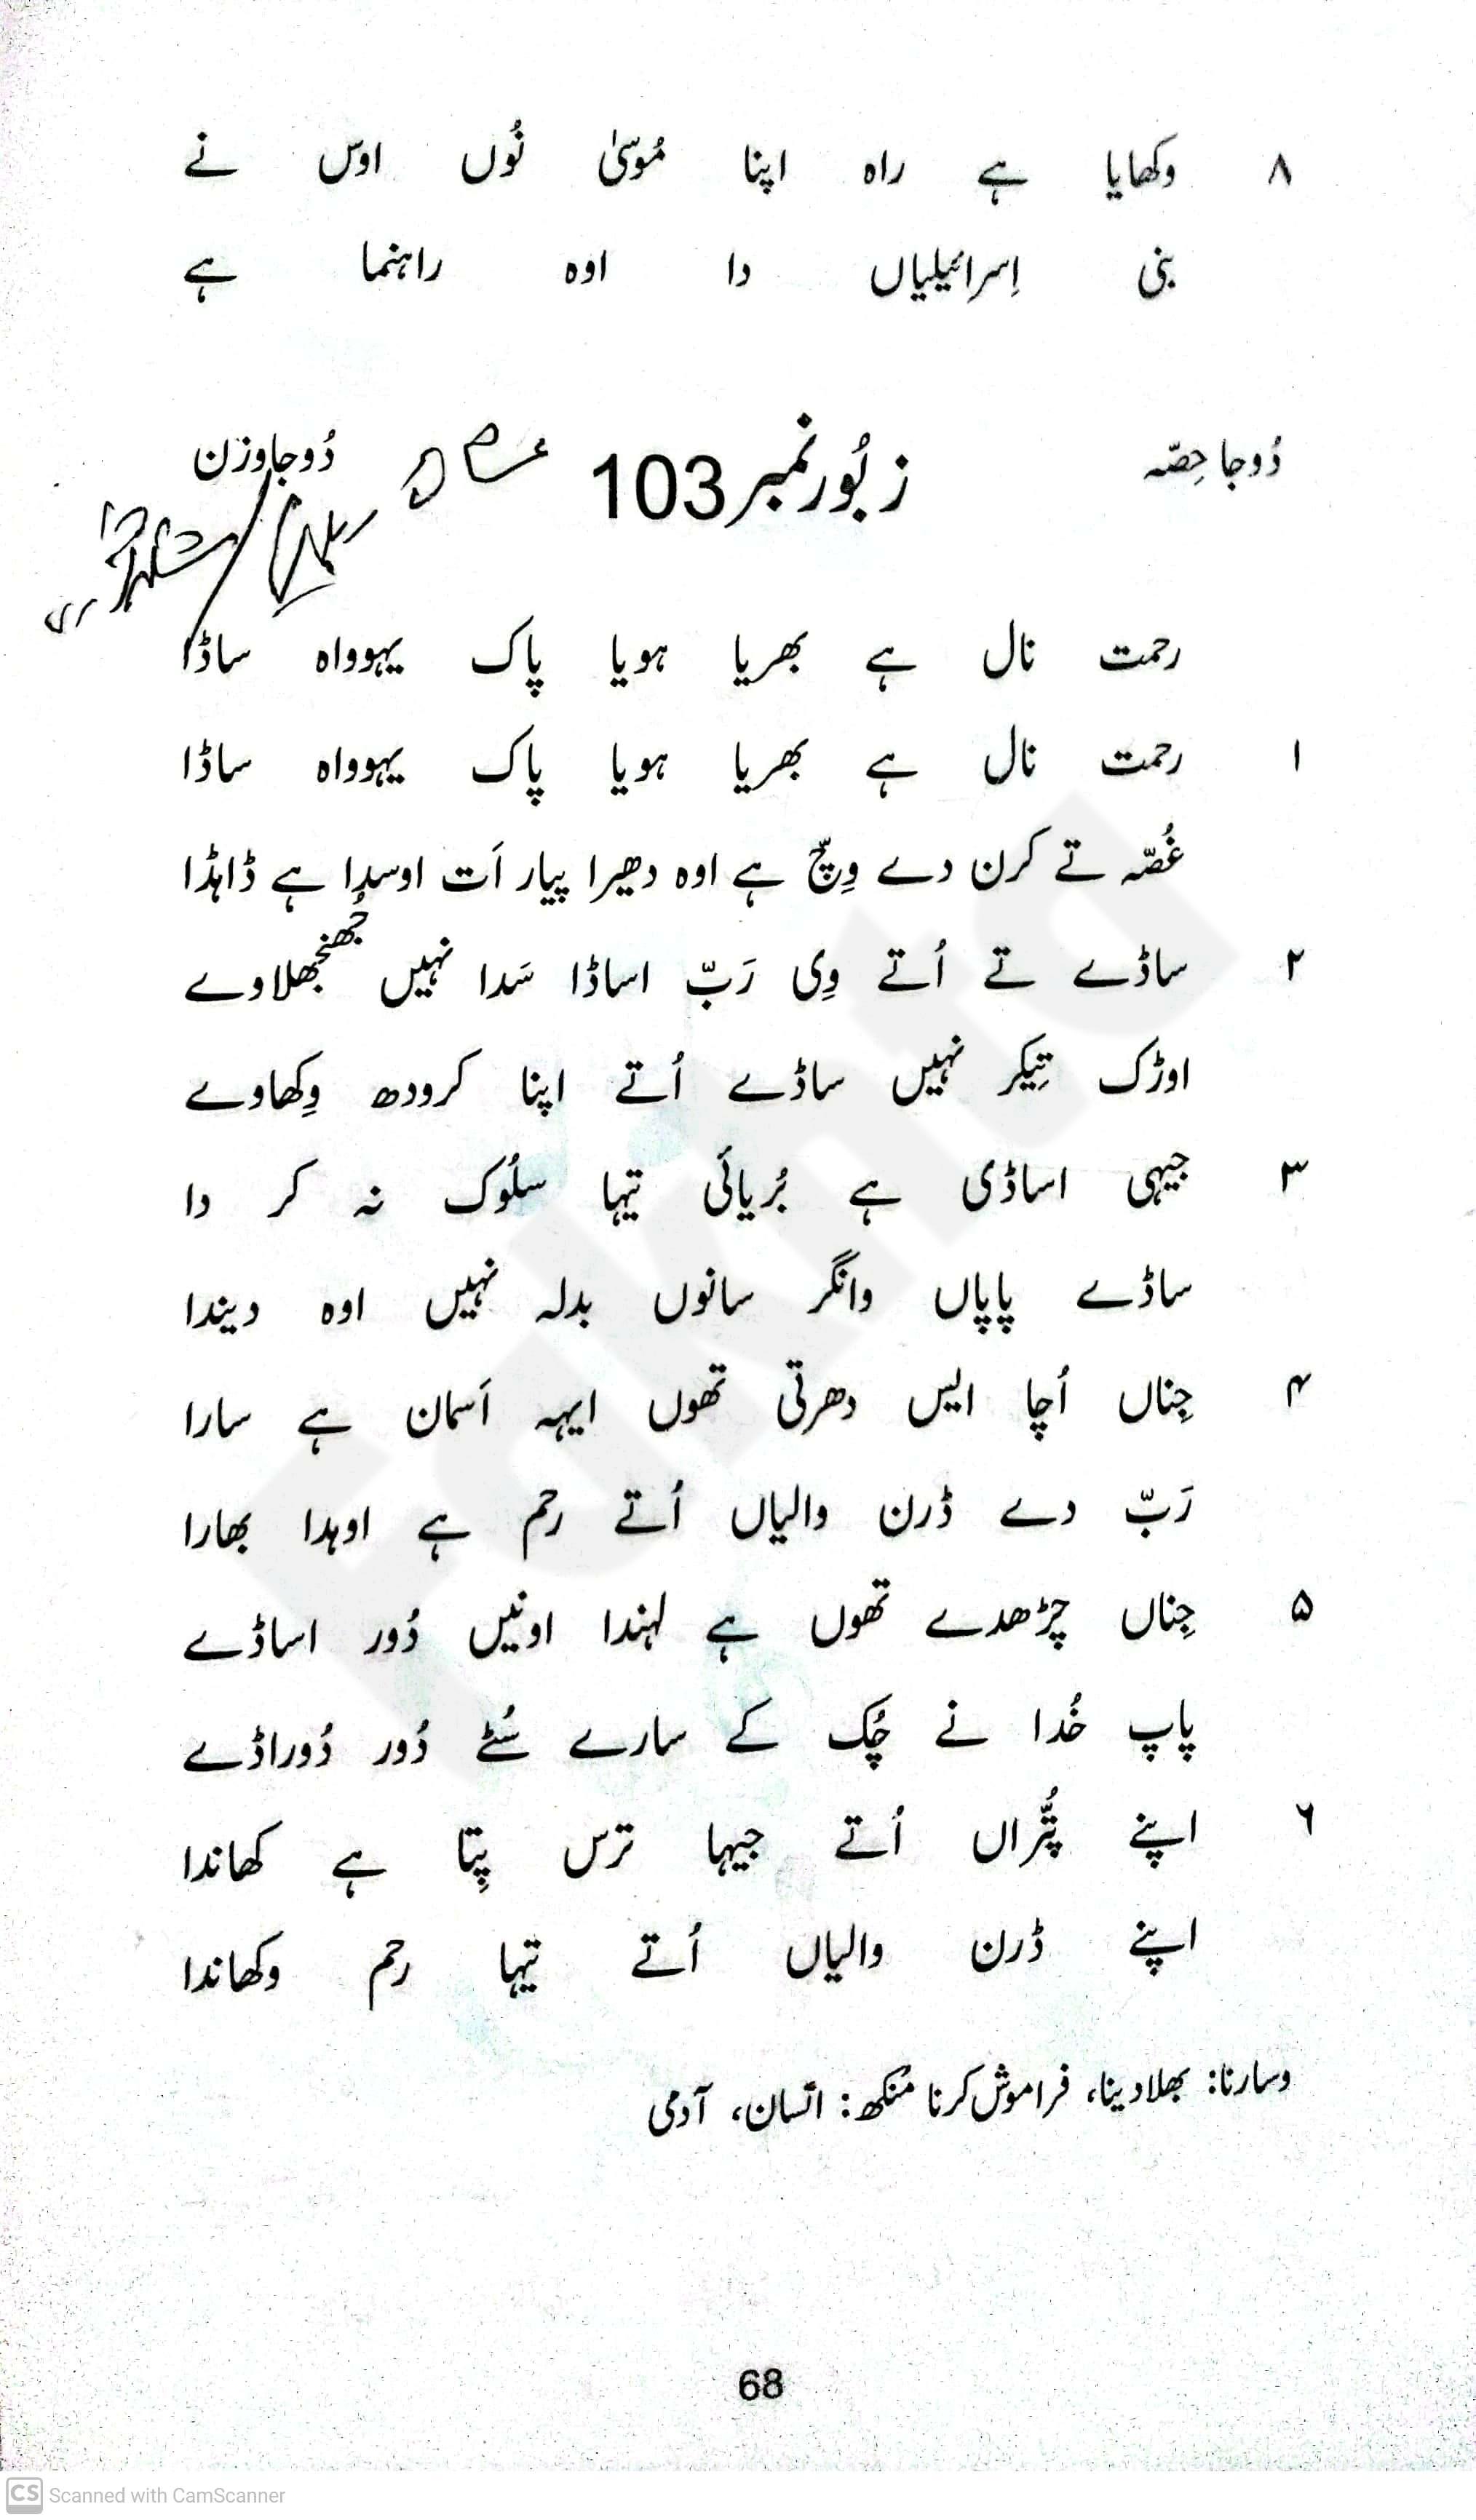 ۸ وکھایا ہے راہ اپنا مُوسیٰ نُوں اوس نے
بنی اِسرائیلیاں دا اوہ راہنما ہے
دُوجا حِصّہ زبُور نمبر 103 دُوجا وزن
رحمت نال ہے بھریا ہویا پاک یہوواہ ساڈا
۱ رحمت نال ہے بھریا ہویا پاک یہوواہ ساڈا
غُصّہ تے کرن دے وِچّ ہے اوہ دھیرا پیار اَت اوسدا ہے ڈاہڈا
۲ ساڈے تے اُتے وِی رَبّ اساڈا سَدا نہیں جُھنجھلاوے
اوڑک تِیکر نہیں ساڈے اُتے اپنا کرودھ وِکھاوے
۳ جیہی اساڈی ہے بُریائی تیہا سلُوک نہ کر دا
ساڈے پاپاں وانگر سانوں بدلہ نہیں اوہ دیندا
۴ جِناں اُچا ایس دھرتی تھوں ایہہ اَسمان ہے سارا
رَبّ دے ڈرن والیاں اُتے رحم ہے اوہدا بھارا
۵ جِناں چڑھدے تھوں ہے لہندا اونیں دُور اساڈے
پاپ خُدا نے چُک کے سارے سُٹے دُور دُوراڈے
۶ اپنے پُتّراں اُتے جیہا ترس پِتا ہے کھاندا
اپنے ڈرن والیاں اُتے تیہا رحم وکھاندا
وسارنا: بھلا دینا، فراموش کرنا مُنکھ: انسان، آدمی
68
CS Scanned with CamScanner